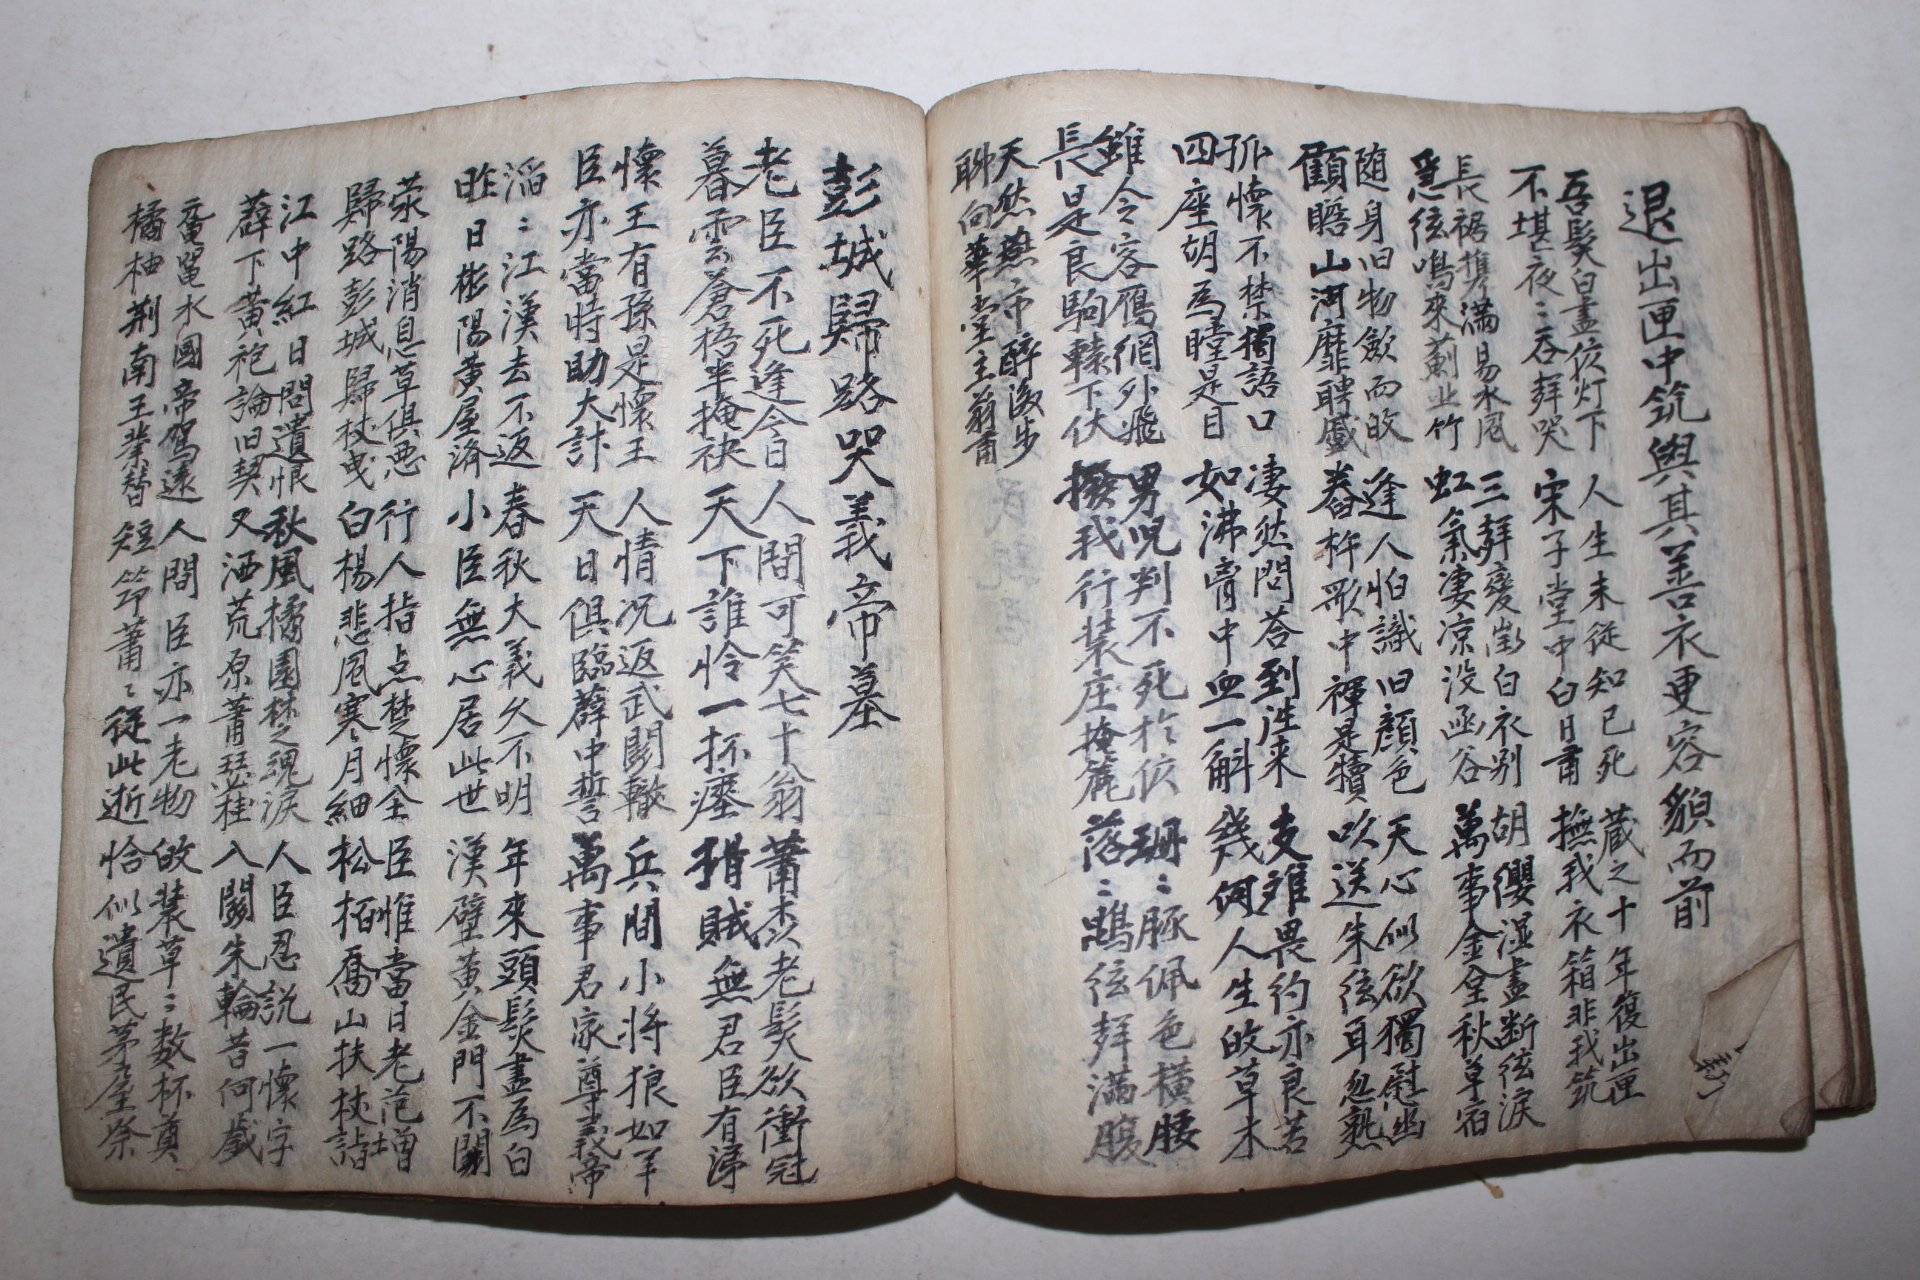 退出匣中筑與其善衣更容貌而前
吾髮白盡依灯下 人生未從知己死 藏之十年復出匣
不堪夜〻吞聲哭 宋子堂中白日肅 撫我衣箱非我筑
長裾携滿易水風 三聲變徵白衣別 胡纓湿盡断弦淚
急弦鳴來薊北竹 虹氣凄凉没函谷 萬事金臺秋草宿
随身旧物歛而收 逢人怕識旧顔色 天心似欲獨慰幽
顧瞻山河靡聘慼 舂杵歌中褌是犢 吹送朱弦耳忽熟
孤懷不禁獨語口 凄然問荅到往来 支離畏約亦良苦
四座胡爲瞠是目 如沸膏中血一斛 幾何人生的草木
雖令容鴈網外飛 男児判不死於依 珊〻豚佩色橫腰
長是良駒轅下伏 撥我行裝庄掩簏 落〻鵾弦聲滿腹
天然燕市醉後步
聊向華堂主翁肅
彭城歸路哭義帝墓
老臣不死逢今日 人間可笑七十翁 蕭森老髮欲衝冠
暮雲蒼梧半掩袂 天下誰怜一抔瘞 猾賊無君臣有涕
懷王有孫是懷王 人情况返武関轍 兵間小將狼如羊
臣亦當時助大計 天日俱臨薜中誓 萬事君家尊義帝
滔〻江漢去不返 春秋大義久不明 年來頭髮盡爲白
昨日彬陽黃屋濟 小臣無心居此世 漢壁黃金門不関
荥陽消息草俱悪 行人指点楚懷全 臣惟當日老范增
歸路彭城歸杖曵 白楊悲風寒月細 松栢喬山扶杖詣
江中紅日問遺恨 秋風橘園楚魂淚 人臣忍説一懷字
薜下黃袍論旧契 又洒荒原蕭瑟桂 入関朱輪昔何戲
奄黽水國帝駕遠 人間臣亦一老物 的裝草〻数杯奠
橘柚荆南王業替 短笻蕭〻從此逝 恰似遺民茅屋祭